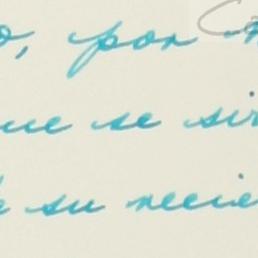 o, por
ue se sir
su recie